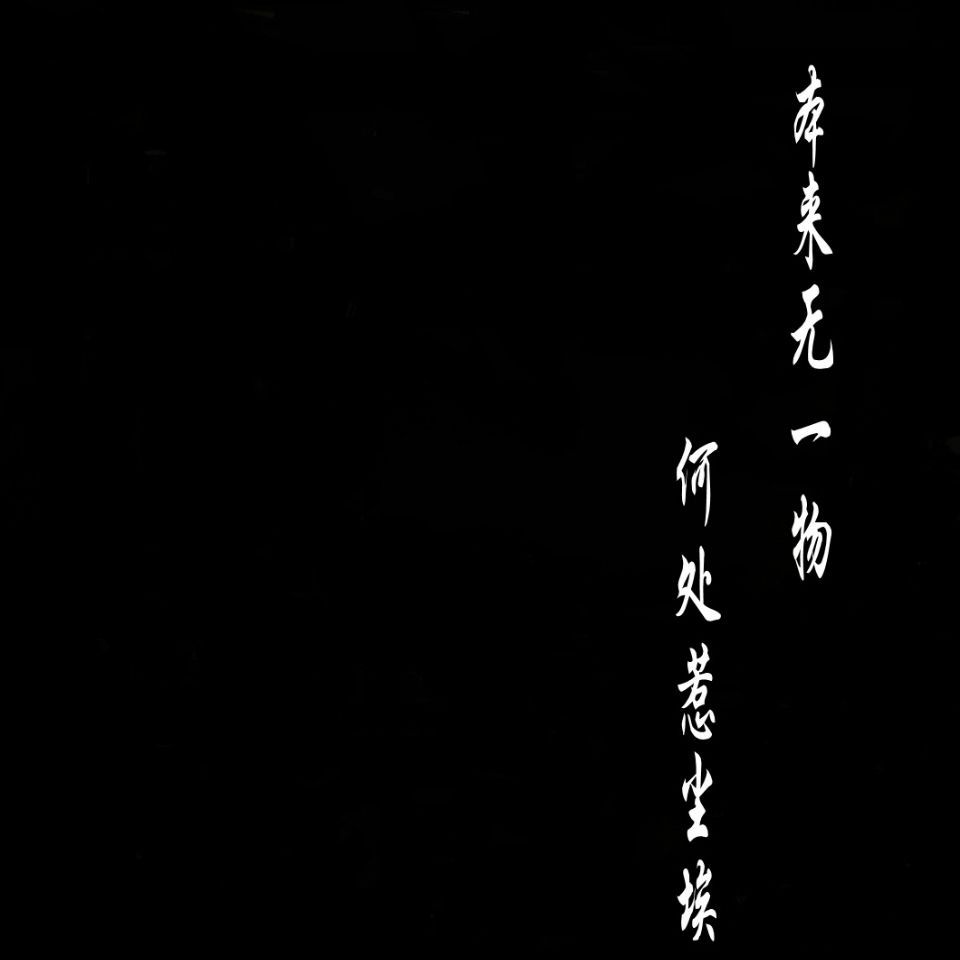 本来无一物
何处惹尘埃